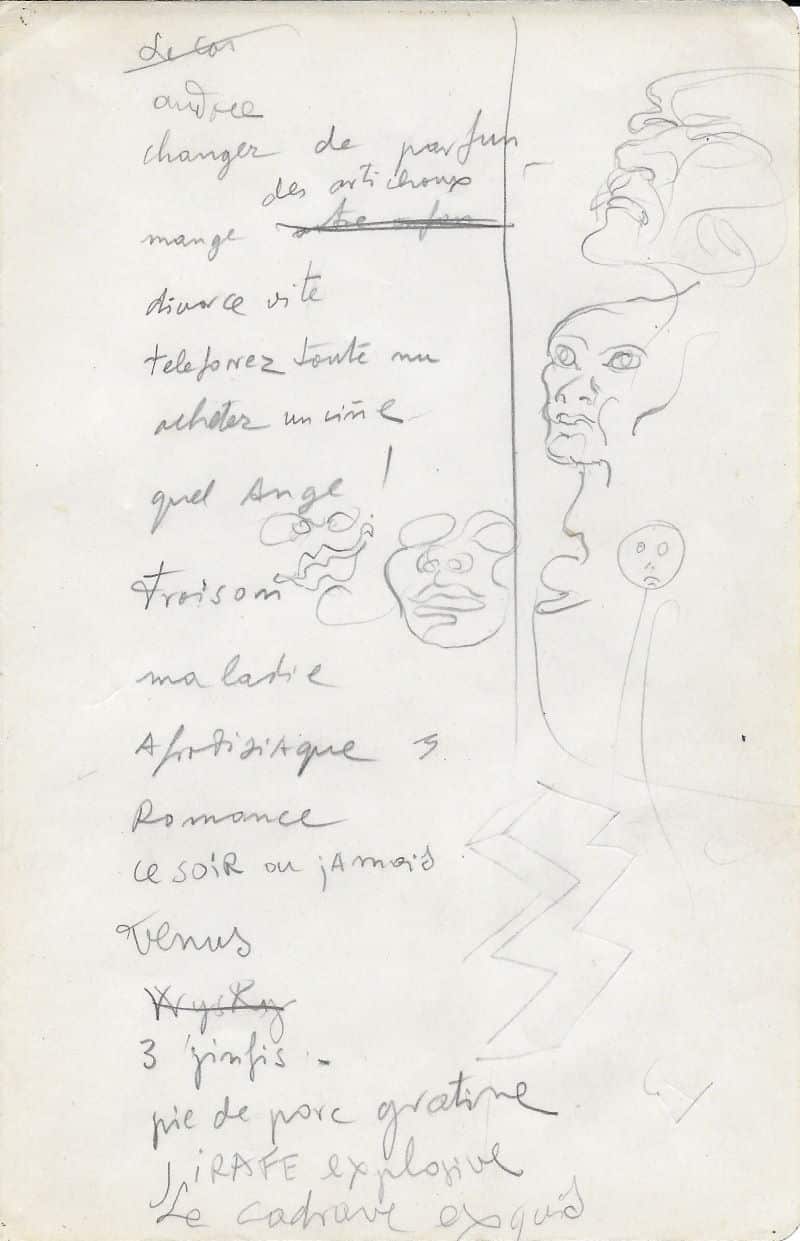 Le Cor
andree
changez de parfun
des artichoux
mange
divorce vite
telefonez toute nu
achetez un cine
quel Ange !
Froison
maladie
Afrodisiaque 5
Romance
ce soiR ou jAmais
Venus
Wysky
3 jinfis -
pie de porc gratine
jiRAFE explosive
Le cadrave exquis